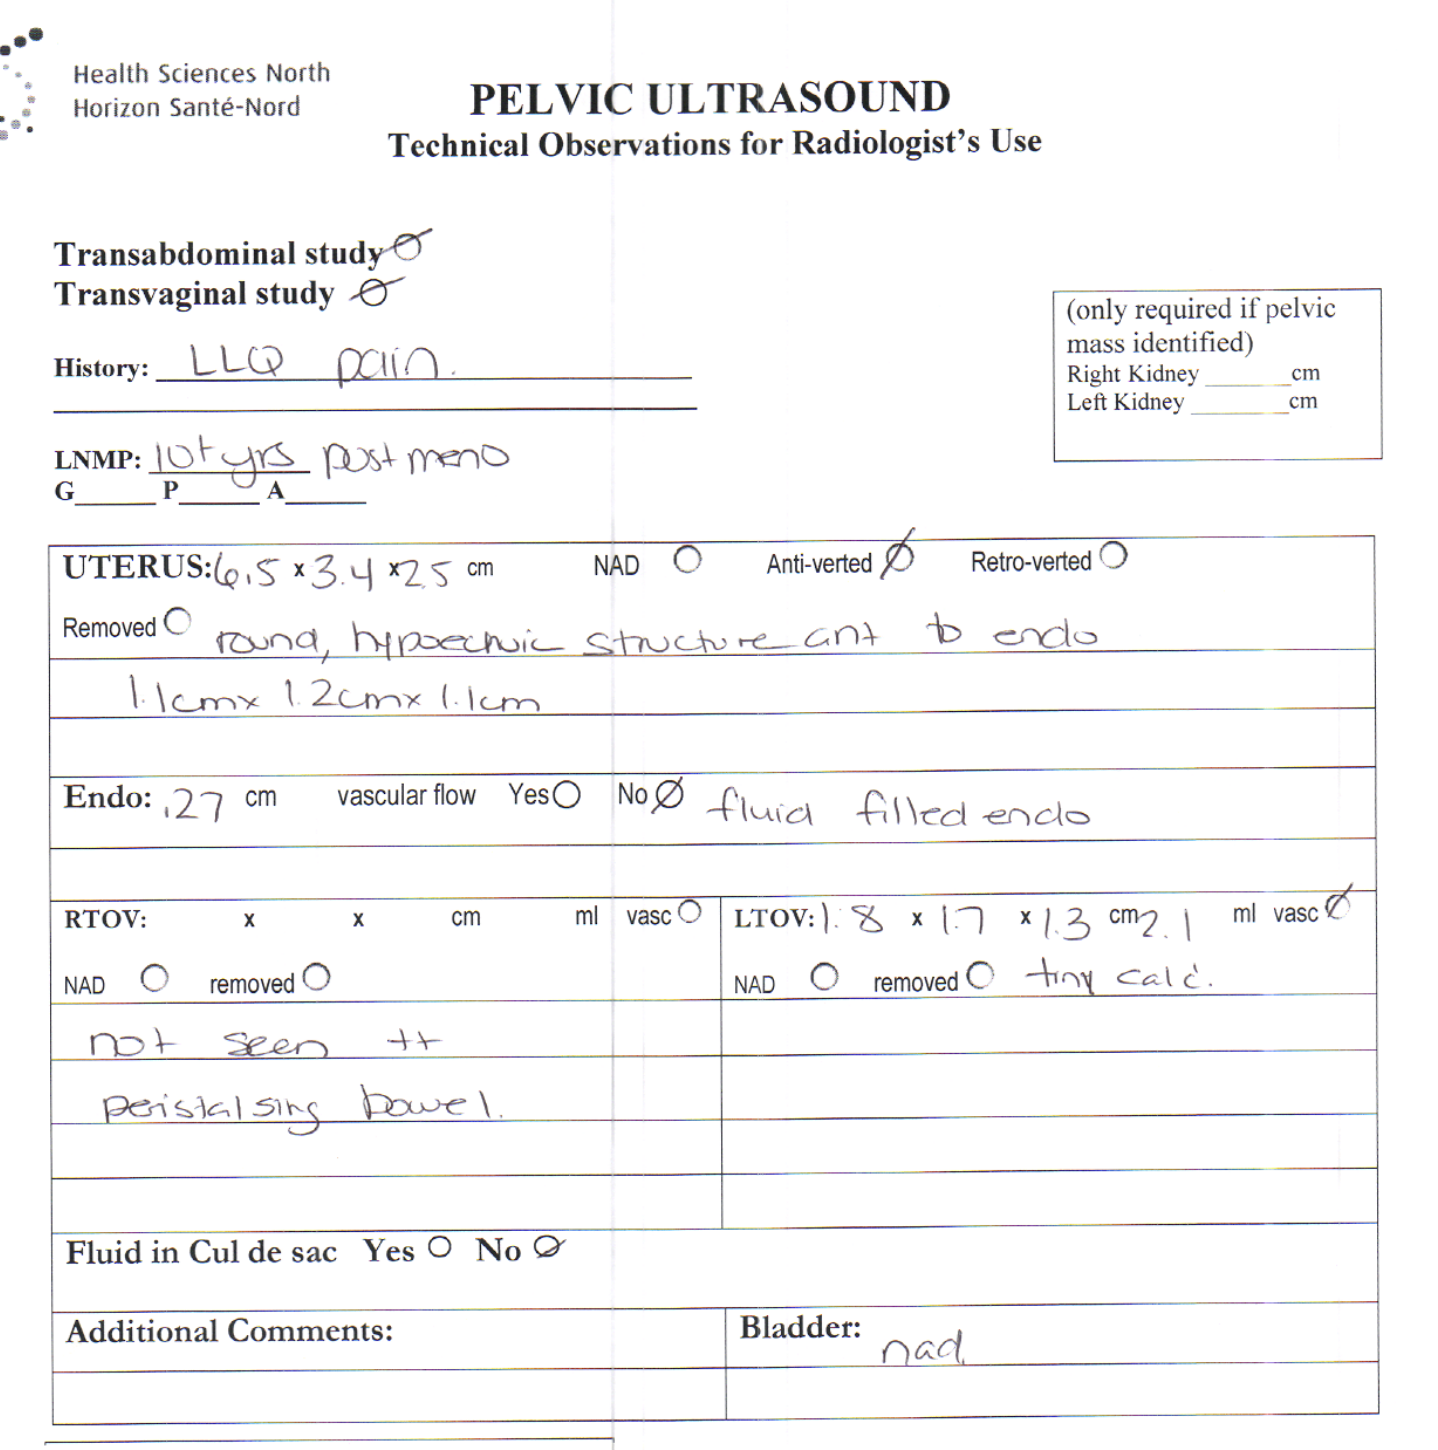 Health Sciences North
Horizon Santé-Nord
PELVIC ULTRASOUND
Technical Observations for Radiologist's Use
Transabdominal study
Transvaginal study
(only required if pelvic
mass identified)
Right Kidney ______cm
Left Kidney _______cm
History: LLQ pain.
LNMP: 10+ yrs postmeno
G______ P______ A______
UTERUS: 6.5 x 3.4 x 2.5 cm NAD Anti-verted Retro-verted
Removed round, hypoechoic structure ant to endo
1.1cm x 1.2cm x 1.1cm
Endo: .27 cm vascular flow Yes No fluid filled endo
RTOV: x x cm ml vasc
NAD removed
not seen ++
peristalsing bowel.
LTOV: 1.8 x 1.7 x 1.3 cm 2.1 ml vasc
NAD removed tiny calc.
Fluid in Cul de sac Yes No
Additional Comments:
Bladder: nad.